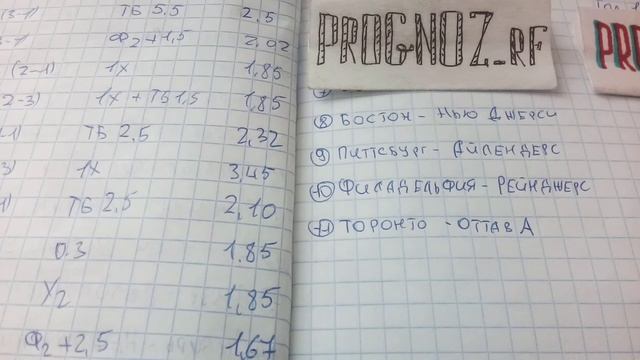 (3-1) ТБ 5.5 2.5
Ф2+1,5 2,02
(2-1) 1X 1,85
2-3) 1X + ТБ 1,5 1,85
-1) ТБ 2,5 2,32
3) 1X 3,45
1) ТБ 2,5 2,10
О.З 1.85
У2 1,85
Ф2 +2,5 1,67
PROGNOZ-RF
PRO
⑧ БОСТОН - НЬЮ ДЖЕРСИ
⑨ ПИТТСБУРГ - АЙЛЕНДЕРС
⑩ ФИЛАДЕЛЬФИЯ - РЕЙНДЖЕРС
⑪ ТОРОНТО - ОТТАВА